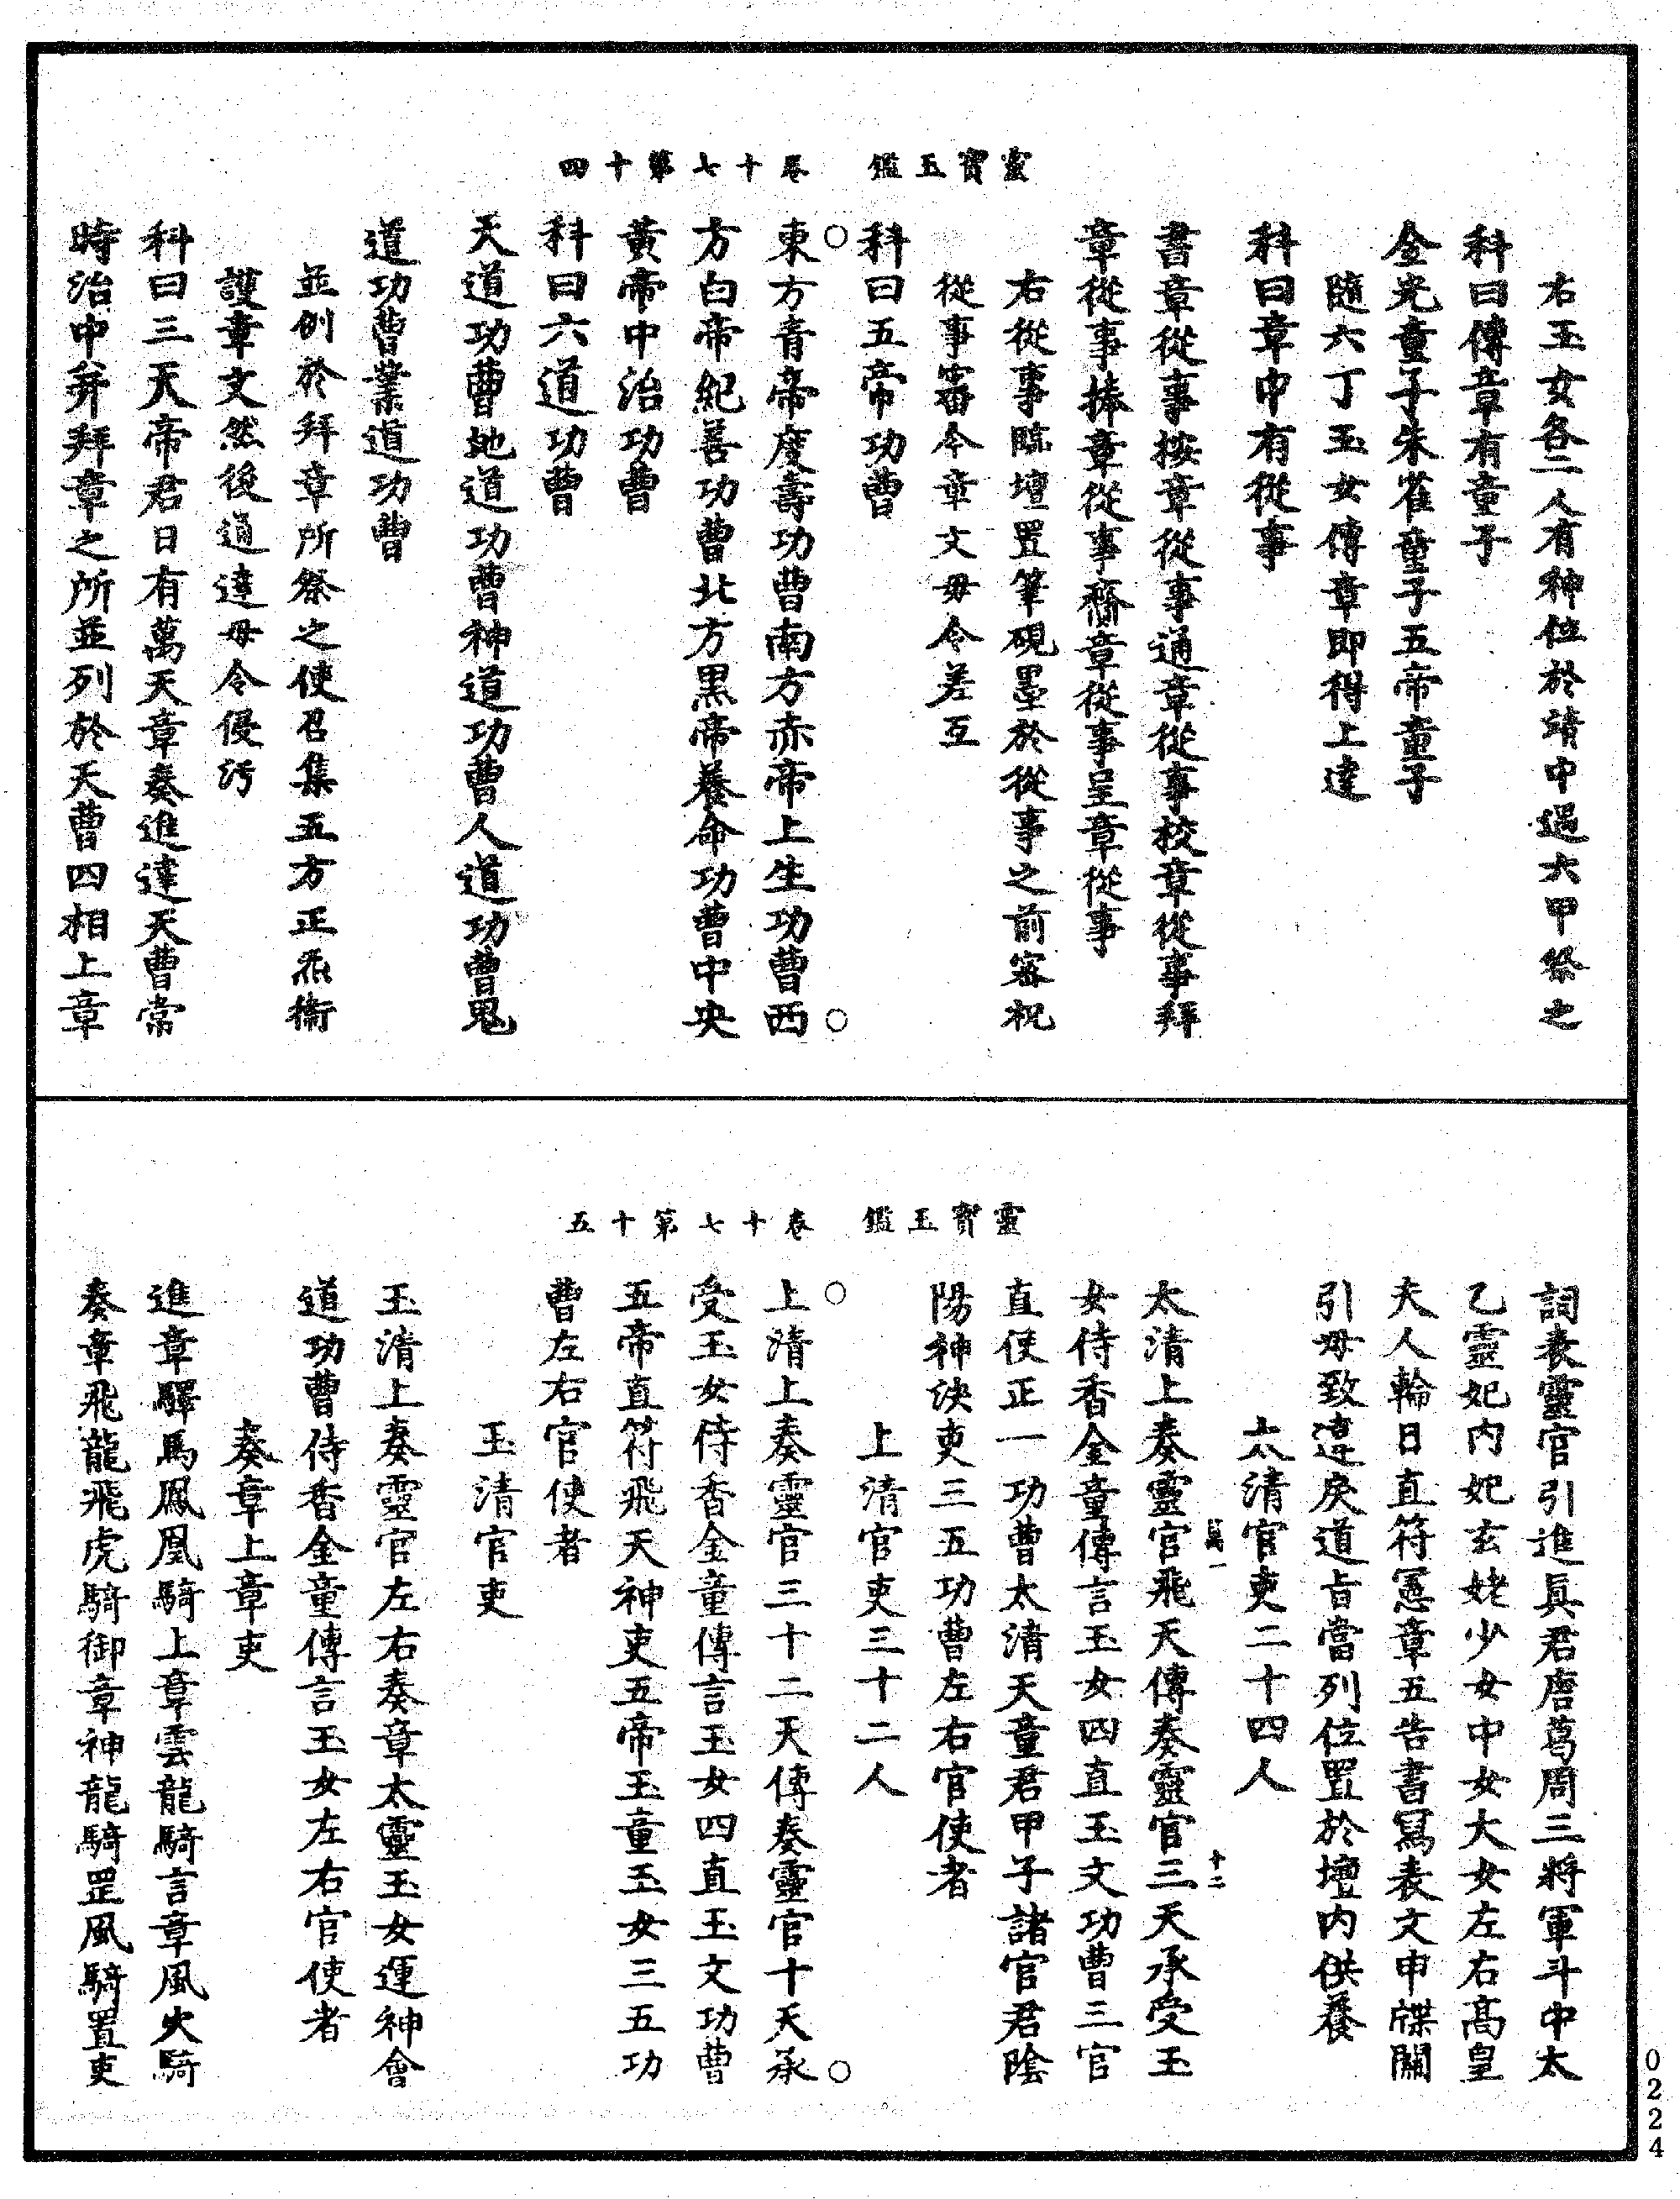 靈寶玉鑑　卷十七第十四
右玉女各二人有神位於靖中遇六甲祭之
科曰傳章有童子
金光童子朱雀童子五帝童子
隨六丁玉女傳章即得上達
科曰章中有從事
書章從事按章從事通章從事校章從事拜
章從事捧章從事齎章從事呈章從事
右從事臨壇置筆硯墨於從事之前審祝
從事審令章文毋令差互
科曰五帝功曹
東方青帝度壽功曹南方赤帝上生功曹西
方白帝紀善功曹北方黑帝養命功曹中央
黃帝中治功曹
科曰六道功曹
天道功曹地道功曹神道功曹人道功曹鬼
道功曹業道功曹
並列於拜章所祭之使召集五方正炁衛
護章文然後通達毋令侵污
科曰三天帝君日有萬天章奏進達天曹常
時治中并拜章之所並列於天曹四相上章
靈寶玉鑑　卷十七第十五
詞表靈官引進真君唐葛周三將軍斗中太
乙靈妃內妃玄姥少女中女大女左右高皇
夫人輪日直符憲章五告書寫表文申牒關
引毋致違戾道旨當列位置於壇內供養
太清官吏二十四人
萬一
太清上奏靈官飛天傳奏靈官三天承受玉
十二
女侍香金童傳言玉女四直玉文功曹三官
直使正一功曹太清天童君甲子諸官君陰
陽神決吏三五功曹左右官使者
上清官吏三十二人
上清上奏靈官三十二天傳奏靈官十天承
受玉女侍香金童傳言玉女四直玉文功曹
五帝直符飛天神吏五帝玉童玉女三五功
曹左右官使者
玉清官吏
玉清上奏靈官左右奏章太靈玉女運神會
道功曹侍香金童傳言玉女左右官使者
奏章上章吏
進章驛馬鳳凰騎上章雲龍騎言章風火騎
奏章飛龍飛虎騎御章神龍騎罡風騎置吏
0224